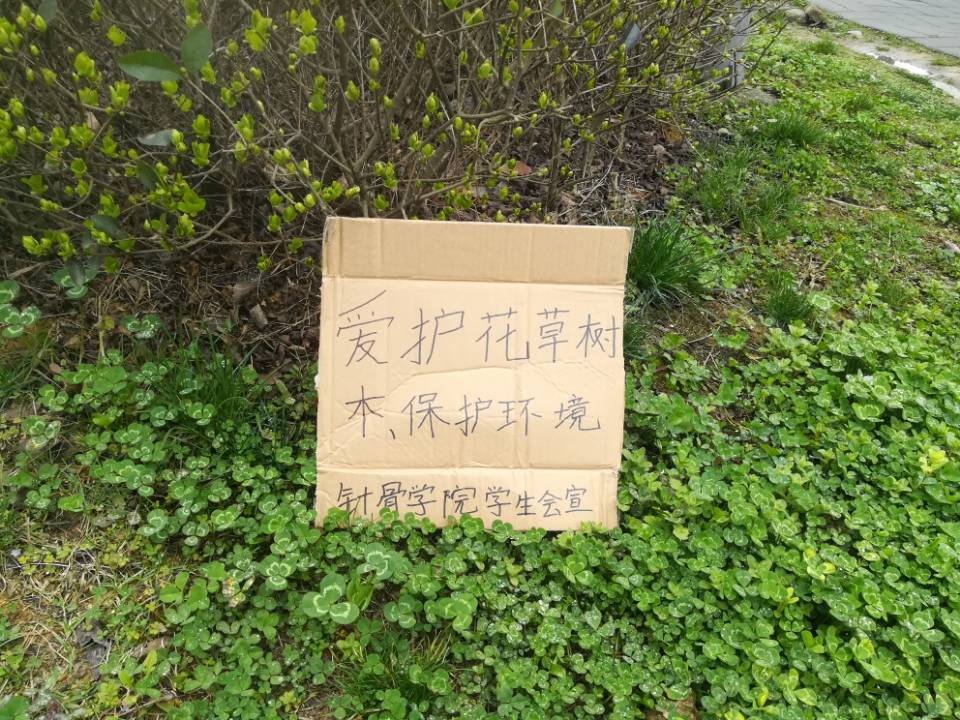 爱护花草树
木、保护环境
针骨学院学生会宣